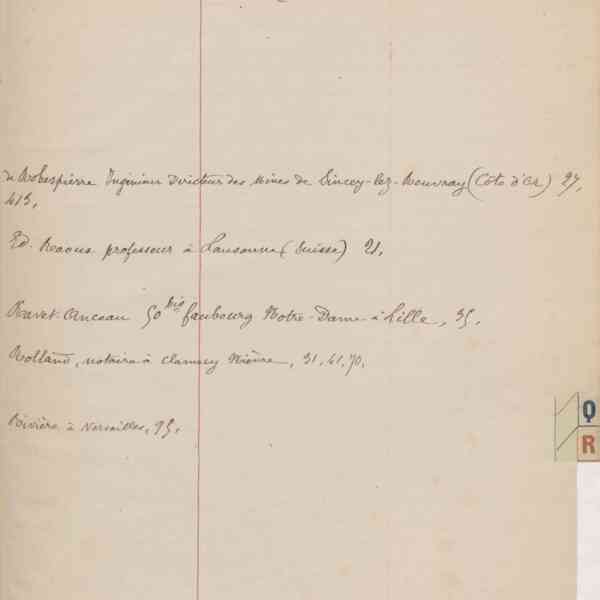 de Robespierre Ingénieur Directeur des Mines de Sincey-lez-Rouvray (Côte d'Or) 27,
413,
Ed. professeur à Lausanne (Suisse) 21,
Ravet-Anceau 50 bis faubourg Notre-Dame à Lille, 35,
Rolland, notaire à Clamecy Nièvre, 31, 41, 70,
Rivière à Versailles, 95,
Q
R